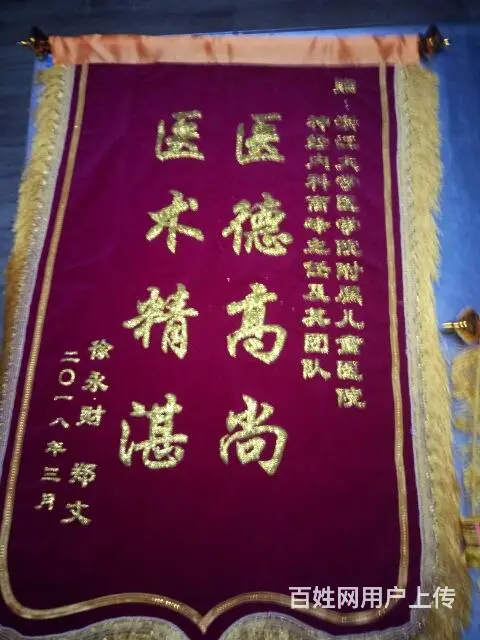 赠:浙江大学医学院附属儿童医院
神经内科高峰主任及其团队
医德高尚
医术精湛
徐永财 郑文
二〇一八年三月
百姓网用户上传